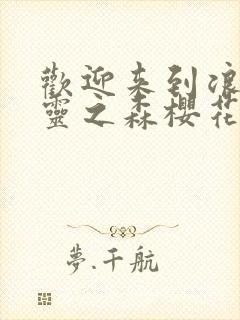 歡迎来到浪
靈之森櫻花
夢.千航